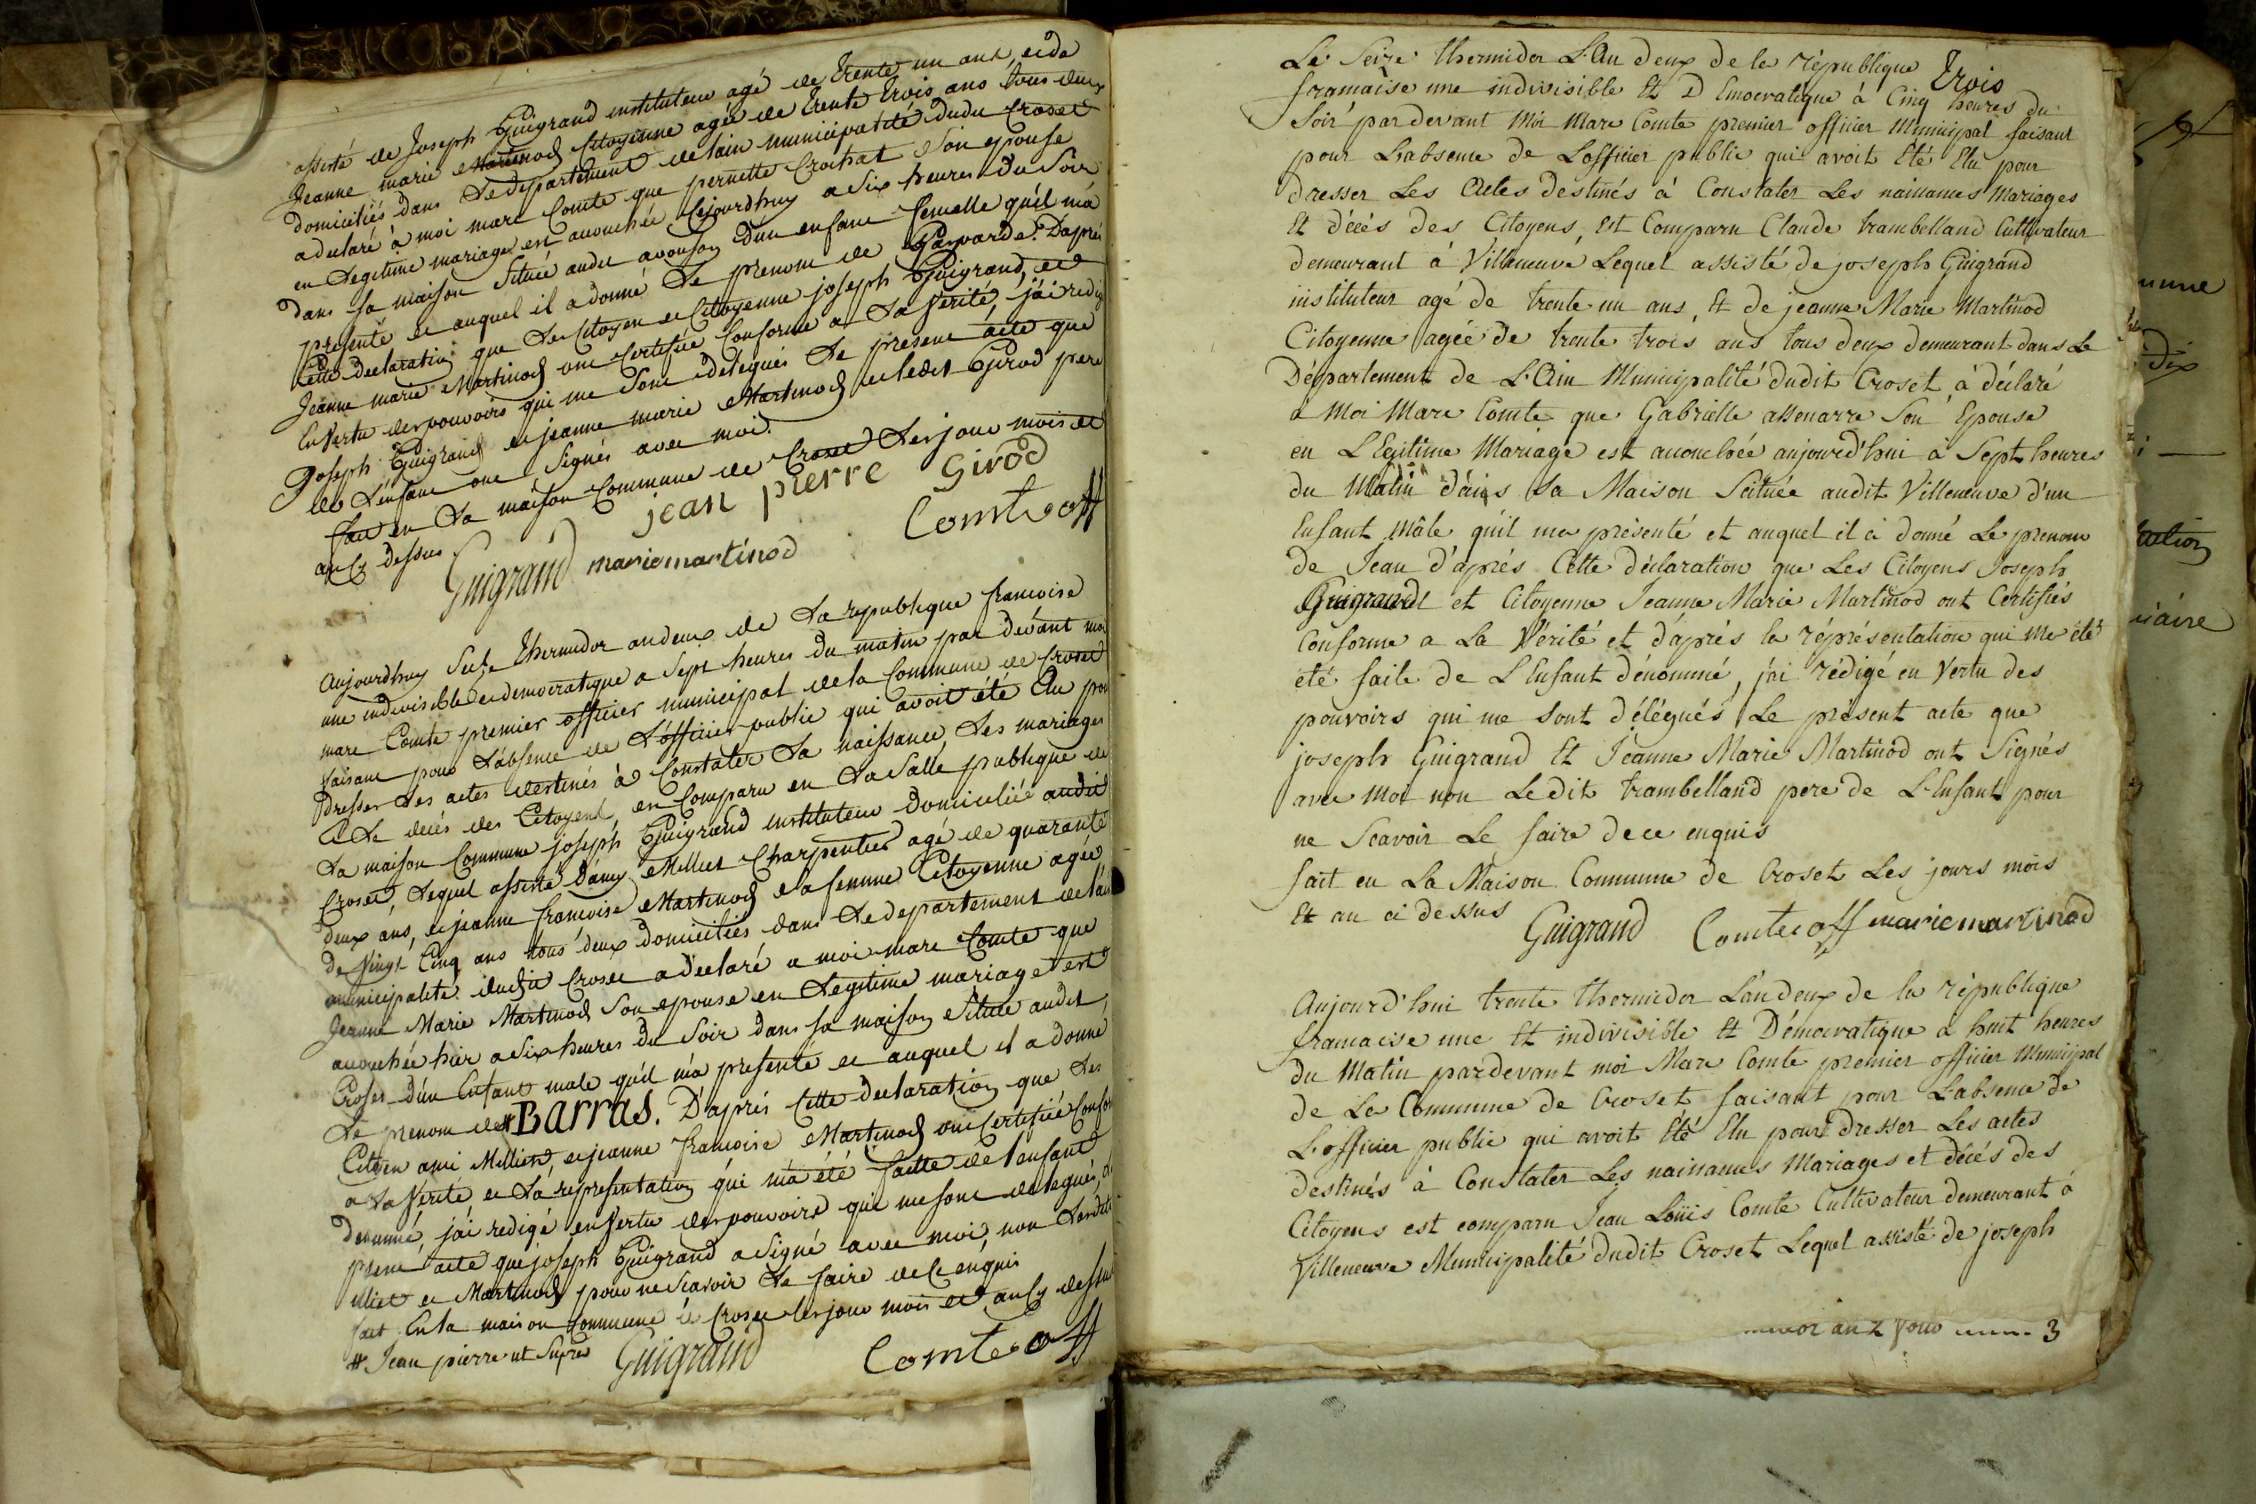 assisté de Joseph Guigrand instituteur agé de trente un ans, et de
Jeanne marie Martinod Citoyenne agée de trente trois ans tous deux
domiciliés dans Le departement de lain municipalité dudit Croset
a declaré à moi marc Comte que pernette Crochat Son epouse
en Legitime mariage est accouchée Cejourdhuy a Six heures du Soir
dans Sa maison Située audit avouson d'un enfant femelle qu'il m'a
presenté et auquel il a donné Le prenom de D'après
Cette declaration que Le Citoyen et Citoyenne joseph Guigrand, et
Jeanne marie Martinod ont Certifiée Conforme a La Verité, j'ai redigé
En Vertu des pouvoirs qui me Sont delegués Le present acte que
Joseph Guigrand et jeanne marie Martinod et ledit Girod pere
de L'enfant ont Signés avec moi.
fait en La maison Commune de Croset Les jour mois et
an Cy dessus
jean pierre Girod
Guigrand mariemartinod Comte off
Aujourdhuy Seize Thermidor an deux de La republique francoise
une indivisible et democratique a Sept heures du matin par devant moi
marc Comte premier officier municipal de la Commune de Croset
faisant pour L'absence de L'officier public qui avoit été Elu pour
Dresser Les actes destinés à Constater La naissance, Les mariages
Et Le decés des Citoyens, est Comparu en La Salle publique de
La maison Commune joseph Guigrand instituteur Domicilié audit
Croset, Lequel assisté D'amy Milliet Charpentier agé de quarante
deux ans, et jeanne francoise Martinod Sa femme Citoyenne agée
De Vingt Cinq ans tous deux domiciliés dans Le departement de l'ain
municipalité dudit Croset a declaré a moi marc Comte que
Jeanne Marie Martinod Son epouse en Legitime mariage est
accouchée hier a Six heures du Soir dans Sa maison Située audit
Croset d'un Enfant male qu'il m'a presenté et auquel il a donné
Le prenom de # Barras. D'après Cette declaration que Les
Citoyen ami Milliet, et jeanne francoise Martinod ont Certifiée Conforme
a La Verité et La representation qui m'a été faitte de l'enfant
Denommé, j'ai redigé en Vertu des pouvoirs qui me sont delegués, le
present acte que joseph Guigrand a Signé avec moi, non Lesdits
Milliet et Martinod pour ne Scavoir Le faire de Ce enquis
fait En La maison Commune à Croset Les jour mois et an Cy dessus
# Jean pierre ut Supra Guigrand Comte off
Le Seize thermidor L'An deux de la république Trois
francaise une indivisible Et Démocratique à Cinq heures du
Soir pardevant Moi Marc Comte premier officier Municipal faisant
pour L'absence de L'officier public qui avoit Eté Elu pour
dresser Les Actes destinés à Constater Les naissances Mariages
Et décés des Citoyens, Est Comparu Claude trambelland Cultivateur
demeurant à Villeneuve Lequel assisté de joseph Guigrand
instituteur agé de trente un ans, Et de jeanne Marie Martinod
Citoyenne agée de trente trois ans tous deux demeurant dans Le
Département de L'Ain Municipalité dudit Croset à déclaré
a Moi Marc Comte que Gabrielle Son Epouse
en LEgitime Mariage est accouchée aujourd'hui à Sept heures
du Matin dans Sa Maison Scituée audit Villeneuve d'un
Enfant Mâle qu'il ma présenté et auquel il a donné Le prenom
de Jean d'après Cette déclaration que Les Citoyens Joseph
Guigrand et Citoyenne Jeanne Marie Martinod ont Certifiés
Conforme a La Vérité et d'après la réprésentation qui me été
été faite de L'Enfant dénommé, j'ai rédigé en Vertu des
pouvoirs qui me sont délégués Le present acte que
joseph Guigrand Et Jeanne Marie Martinod ont Signés
avec Moi non Ledit trambelland pere de L'Enfant pour
ne Scavoir Le faire de ce enquis
fait en La Maison Commune de Croset Les jours mois
Et an ci dessus Guigrand Comte off mariemartinod
Aujourd'hui trente thermidor L'an deux de la république
francaise une Et indivisible Et Démocratique a huit heures
du Matin pardevant moi Marc Comte premier officier Municipal
de La Commune de Croset faisant pour L'absence de
L'officier public qui avoit Eté Elu pour dresser Les actes
destinés à Constater Les naissances Mariages et décés des
Citoyens est comparu Jean Loüis Comte Cultivateur demeurant à
Villeneuve Municipalité dudit Croset Lequel assisté de joseph
3